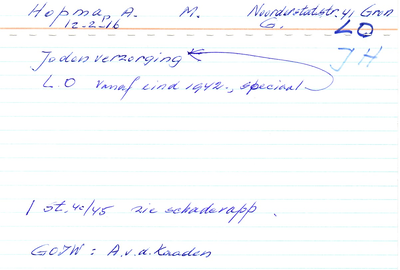 Hopma, A. M. Noorderstatstr. 41 Gron
12-2-16 G. LO
Jodenverzorging JH
L.O vanaf eind 1942-, speciaal
1 st. 40/45 zie schaderapp.
GOIW: A.v.d. Kaaden